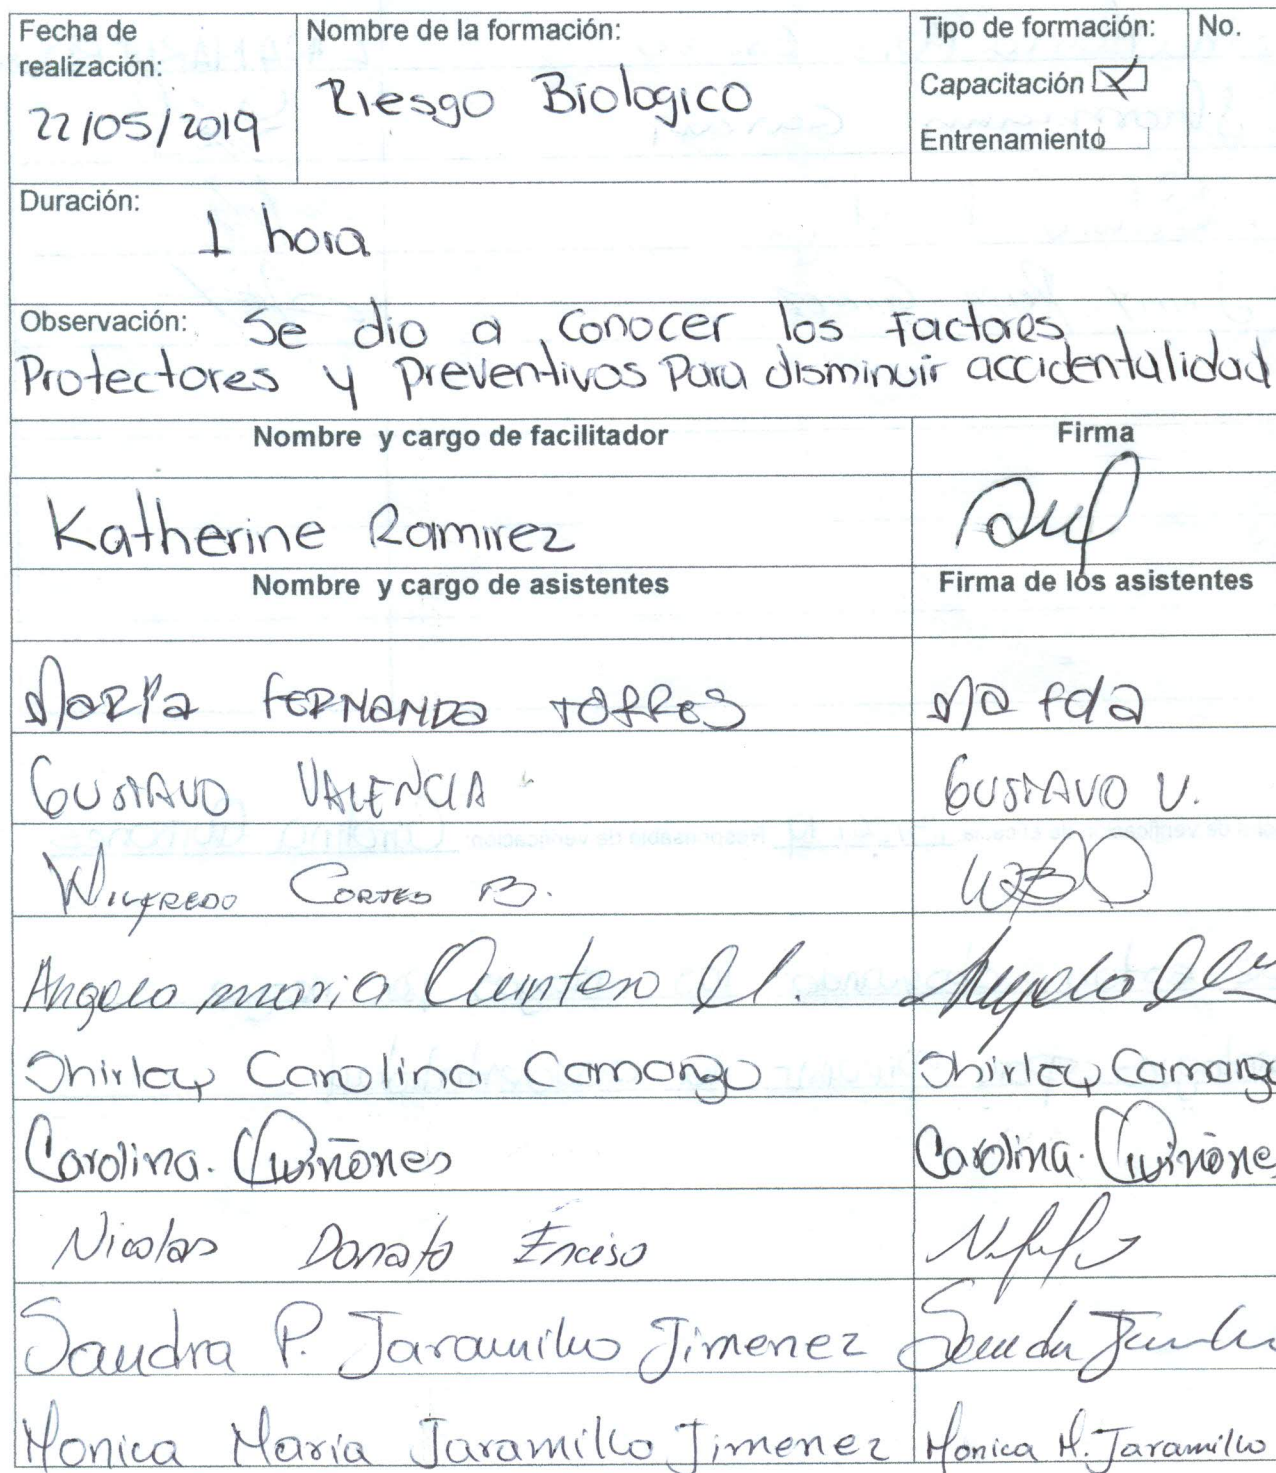 Fecha de realización: 22/05/2019
Nombre de la formación: Riesgo Biologico
Tipo de formación:
Capacitación
Entrenamiento
No.
Duración: 1 hora
Observación: Se dio a conocer los factores
Protectores y preventivos para disminuir accidentalidad
Nombre y cargo de facilitador
Firma
Katherine Ramirez
Nombre y cargo de asistentes
Firma de los asistentes
MARIA FERNANDA TORRES
Ma fda
GUSTAVO VALENCIA
GUSTAVO V.
WILFREDO CORTES B.
Angela maria Quintero
Angela
Shirley Carolina Camargo
Shirley Camargo
Carolina. Quiñones
Carolina. Quiñones
Nicolas Donato Enciso
Sandra P. Jaramillo Jimenez
Sandra
Monica Maria Jaramillo Jimenez
Monica M. Jaramillo